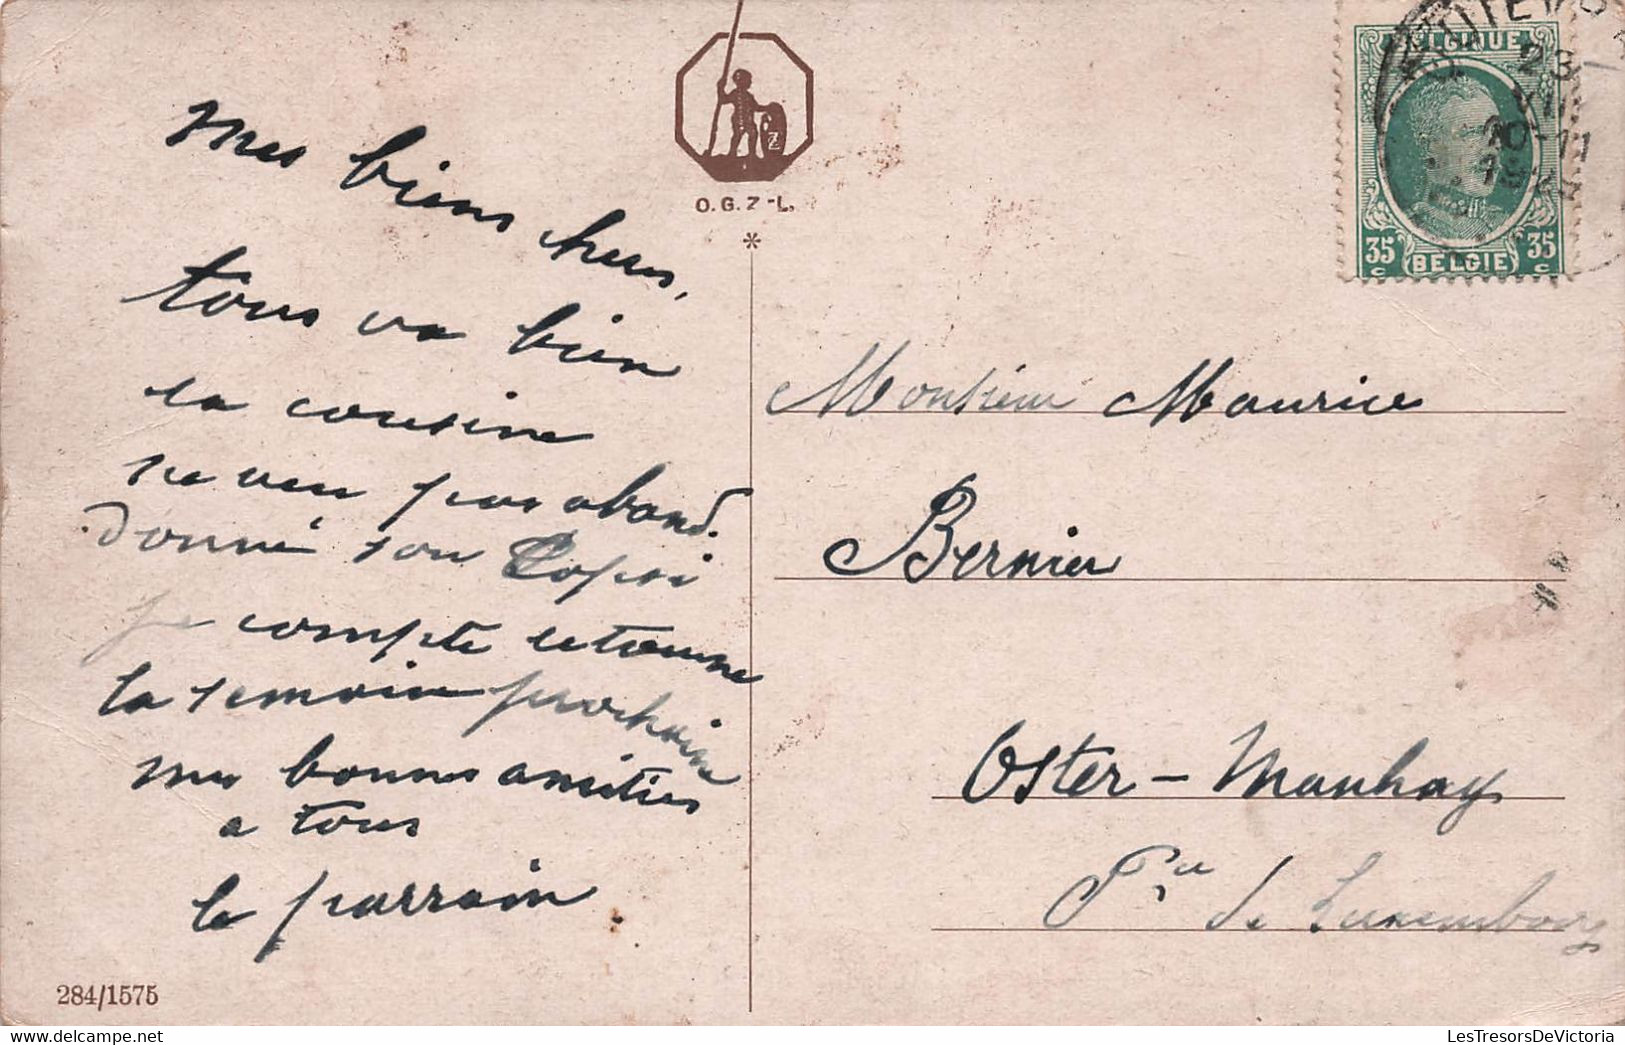 mes biens chers,
tous va bien
la cousine
ne veu pas aband.
donné son
je compte retourne
la semain prochaine
mes bonnes amitiés
a tous
le parrain
284/1575
O.G.Z.-L.
*
BELGIQUE
35 c BELGIE 35 c
23
VII
10-11
Monsieur Maurice
Bernier
Oster-Manhay
Pce de Luxembourg
LesTresorsDeVictoria.com